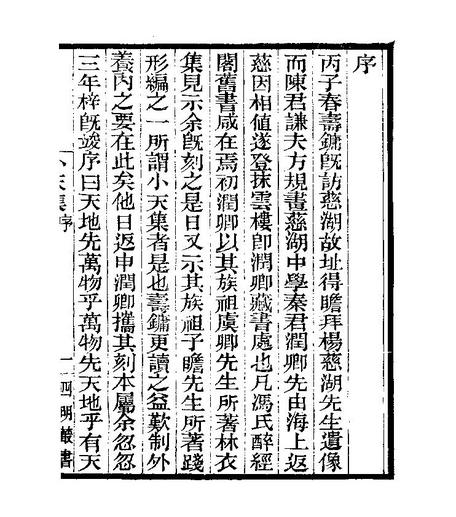 序
丙子春壽鏞既訪慈湖故址得瞻拜楊慈湖先生遺像
而陳君謙夫方規畫慈湖中學秦君潤卿先由海上返
慈因相値遂登抹雲樓卽潤卿藏書處也凡馮氏醉經
閣舊書咸在焉初潤卿以其族祖虞卿先生所著林衣
集見示余旣刻之是日又示其族祖子瞻先生所著踐
形編之一所謂小天集者是也壽鏞更讀之益歎制外
養內之要在此矣他日返申潤卿攜其刻本屬余忽忽
三年梓旣竣序曰天地先萬物乎萬物先天地乎有天
小天集 序
一 四明叢書